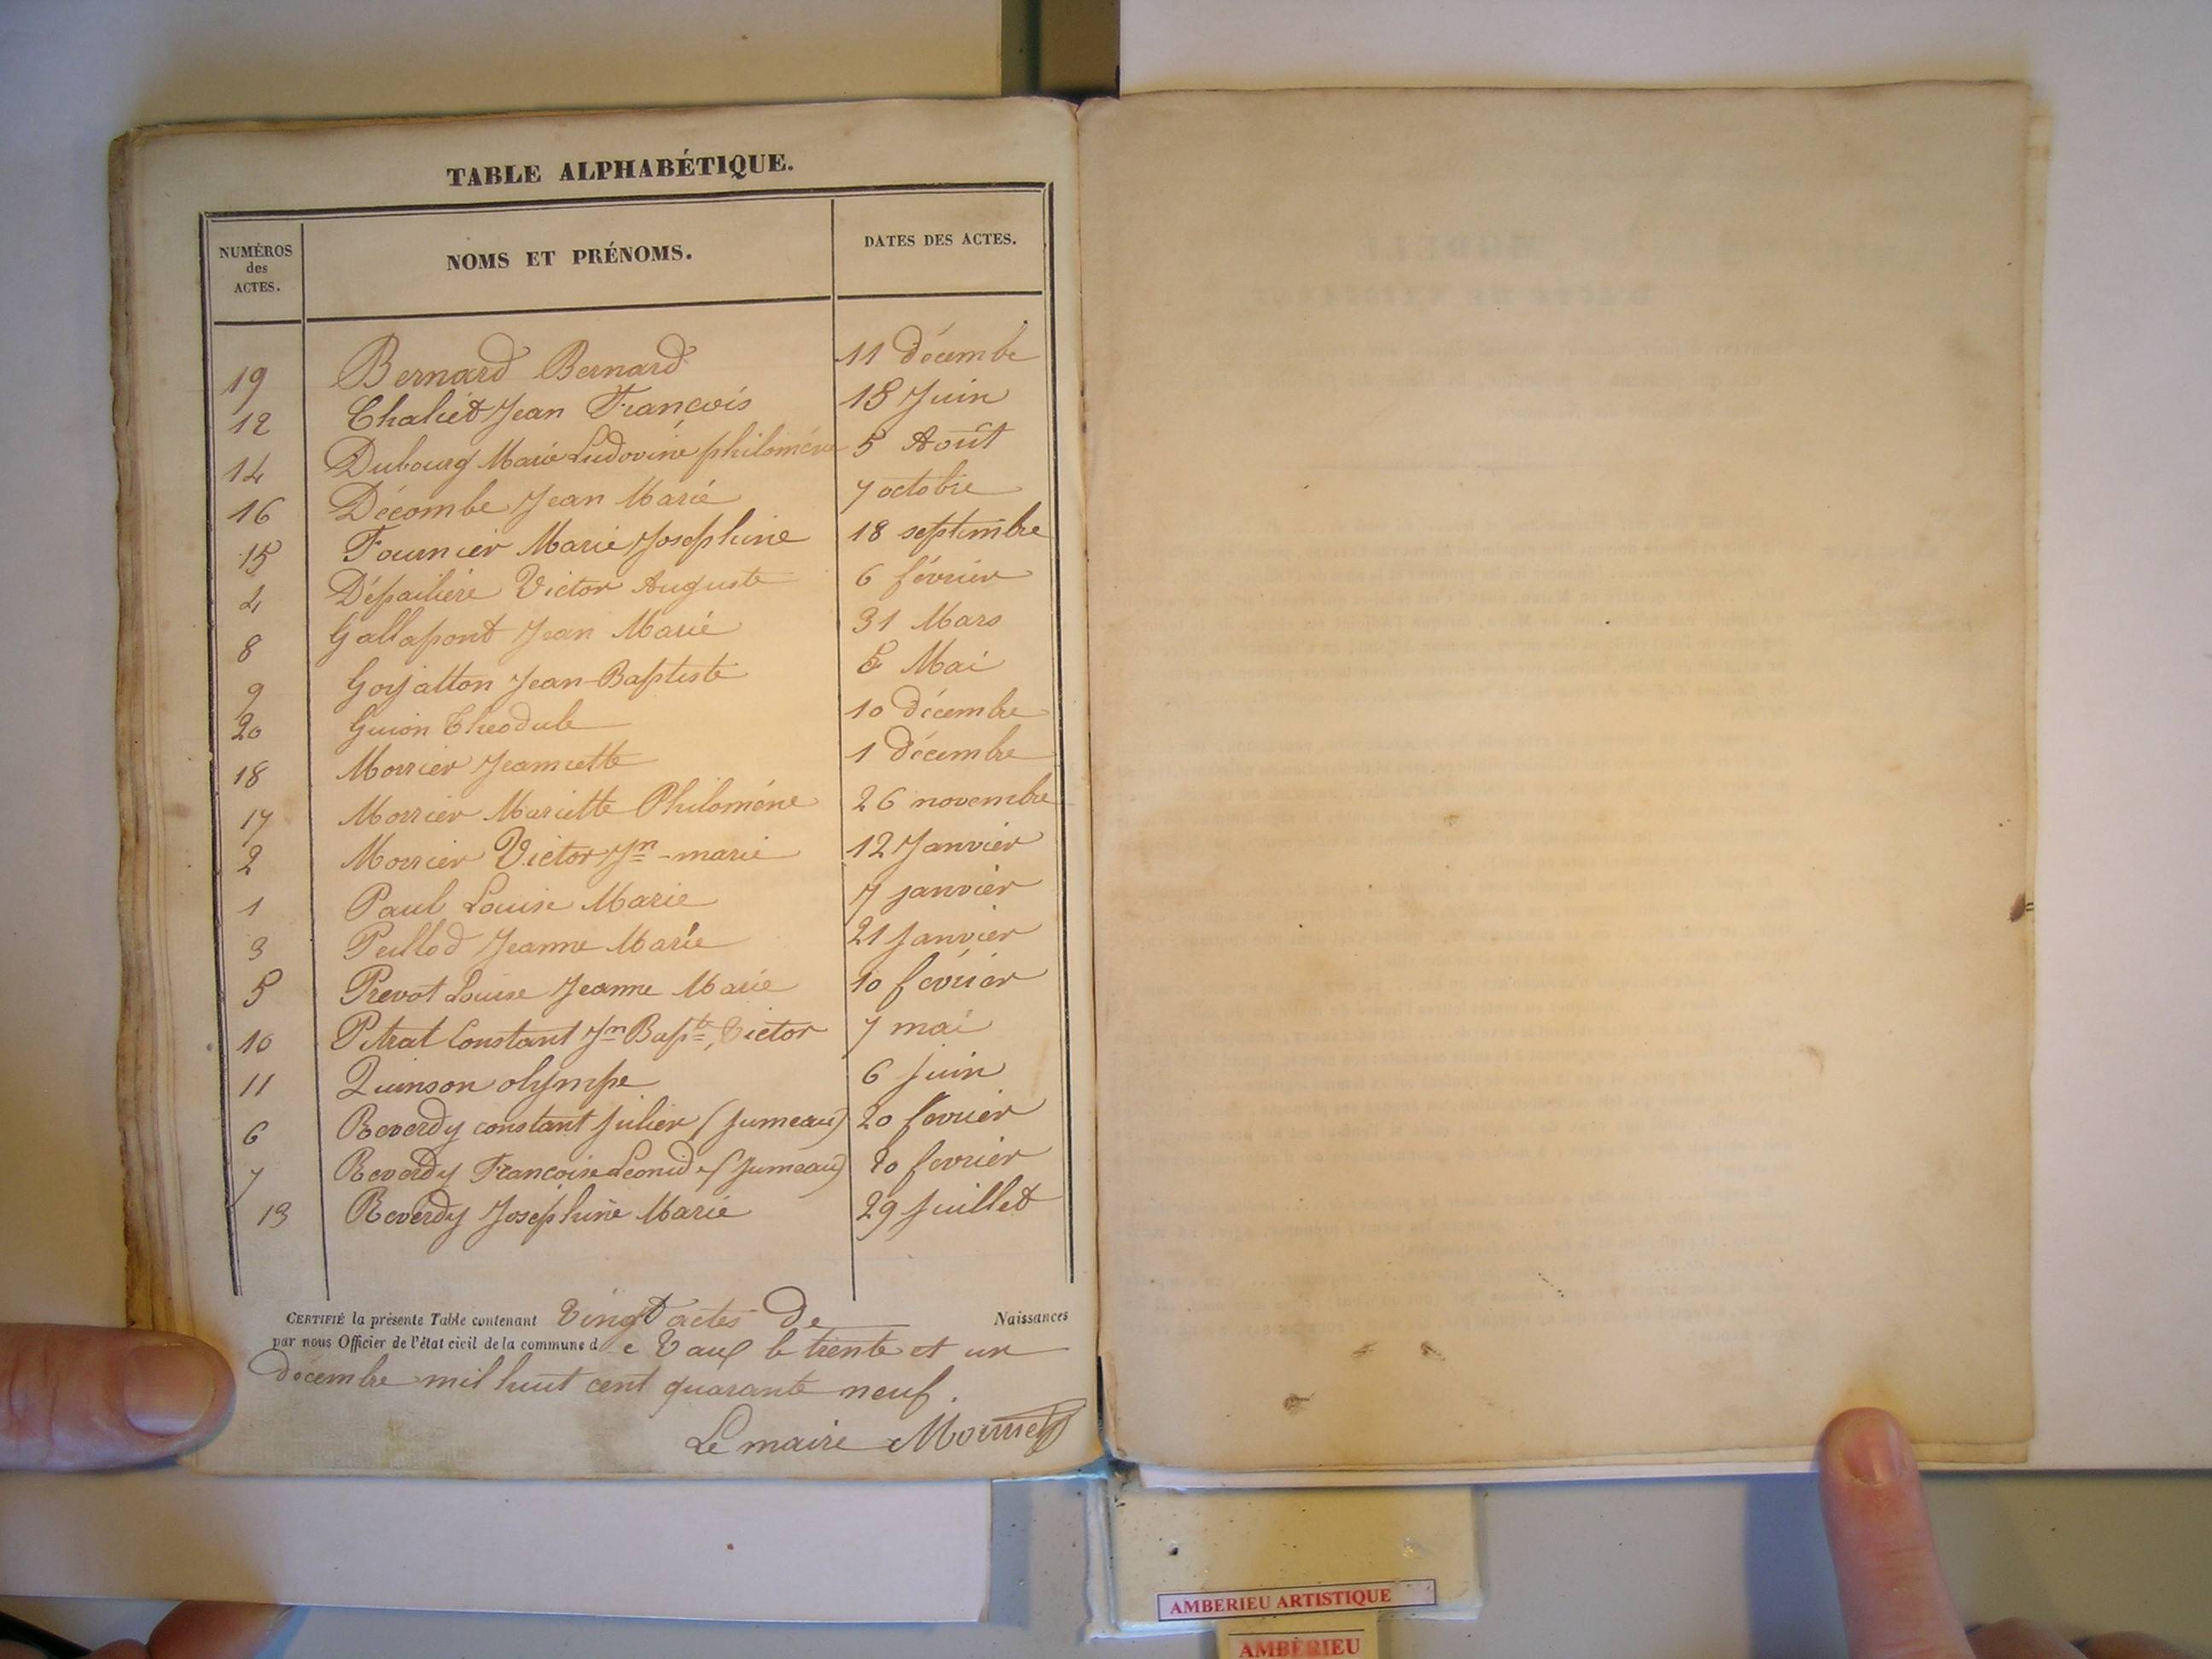 TABLE ALPHABÉTIQUE.
NUMÉROS des ACTES. NOMS ET PRÉNOMS. DATES DES ACTES.
19 Bernard Bernard 11 décembre
12 Chaliet Jean François 18 Juin
14 Dubourg Marie Ludovine philomène 5 Août
16 Décombe Jean Marie 7 octobre
15 Fournier Marie Josephine 18 septembre
4 Dépailière Victor Auguste 6 février
8 Gallapont Jean Marie 31 Mars
9 Goyatton Jean-Baptiste 5 Mai
20 Guion Théodule 10 décembre
18 Morrier Jeannette 1 Décembre
17 Morrier Mariette Philomène 26 novembre
2 Morrier Victor Jn-marie 12 Janvier
1 Paul Louise Marie 7 janvier
3 Peillod Jeanne Marie 21 Janvier
5 Prevot Louise Jeanne Marie 10 février
10 Pitrat Constant Jn Bapte, Victor 7 mai
11 Quinson olympe 6 Juin
6 Reverdy constant julien (Jumeau) 20 fevrier
7 Reverdy Francoise Leonide (Jumeau) 20 fevrier
13 Reverdy Joséphine Marie 29 Juillet
CERTIFIÉ la présente Table contenant Vingt actes De Naissances
par nous Officier de l'état civil de la commune d e Vaux le trente et un
décembre mil huit cent quarante neuf.
Le maire
AMBERIEU ARTISTIQUE
AMBÉRIEU